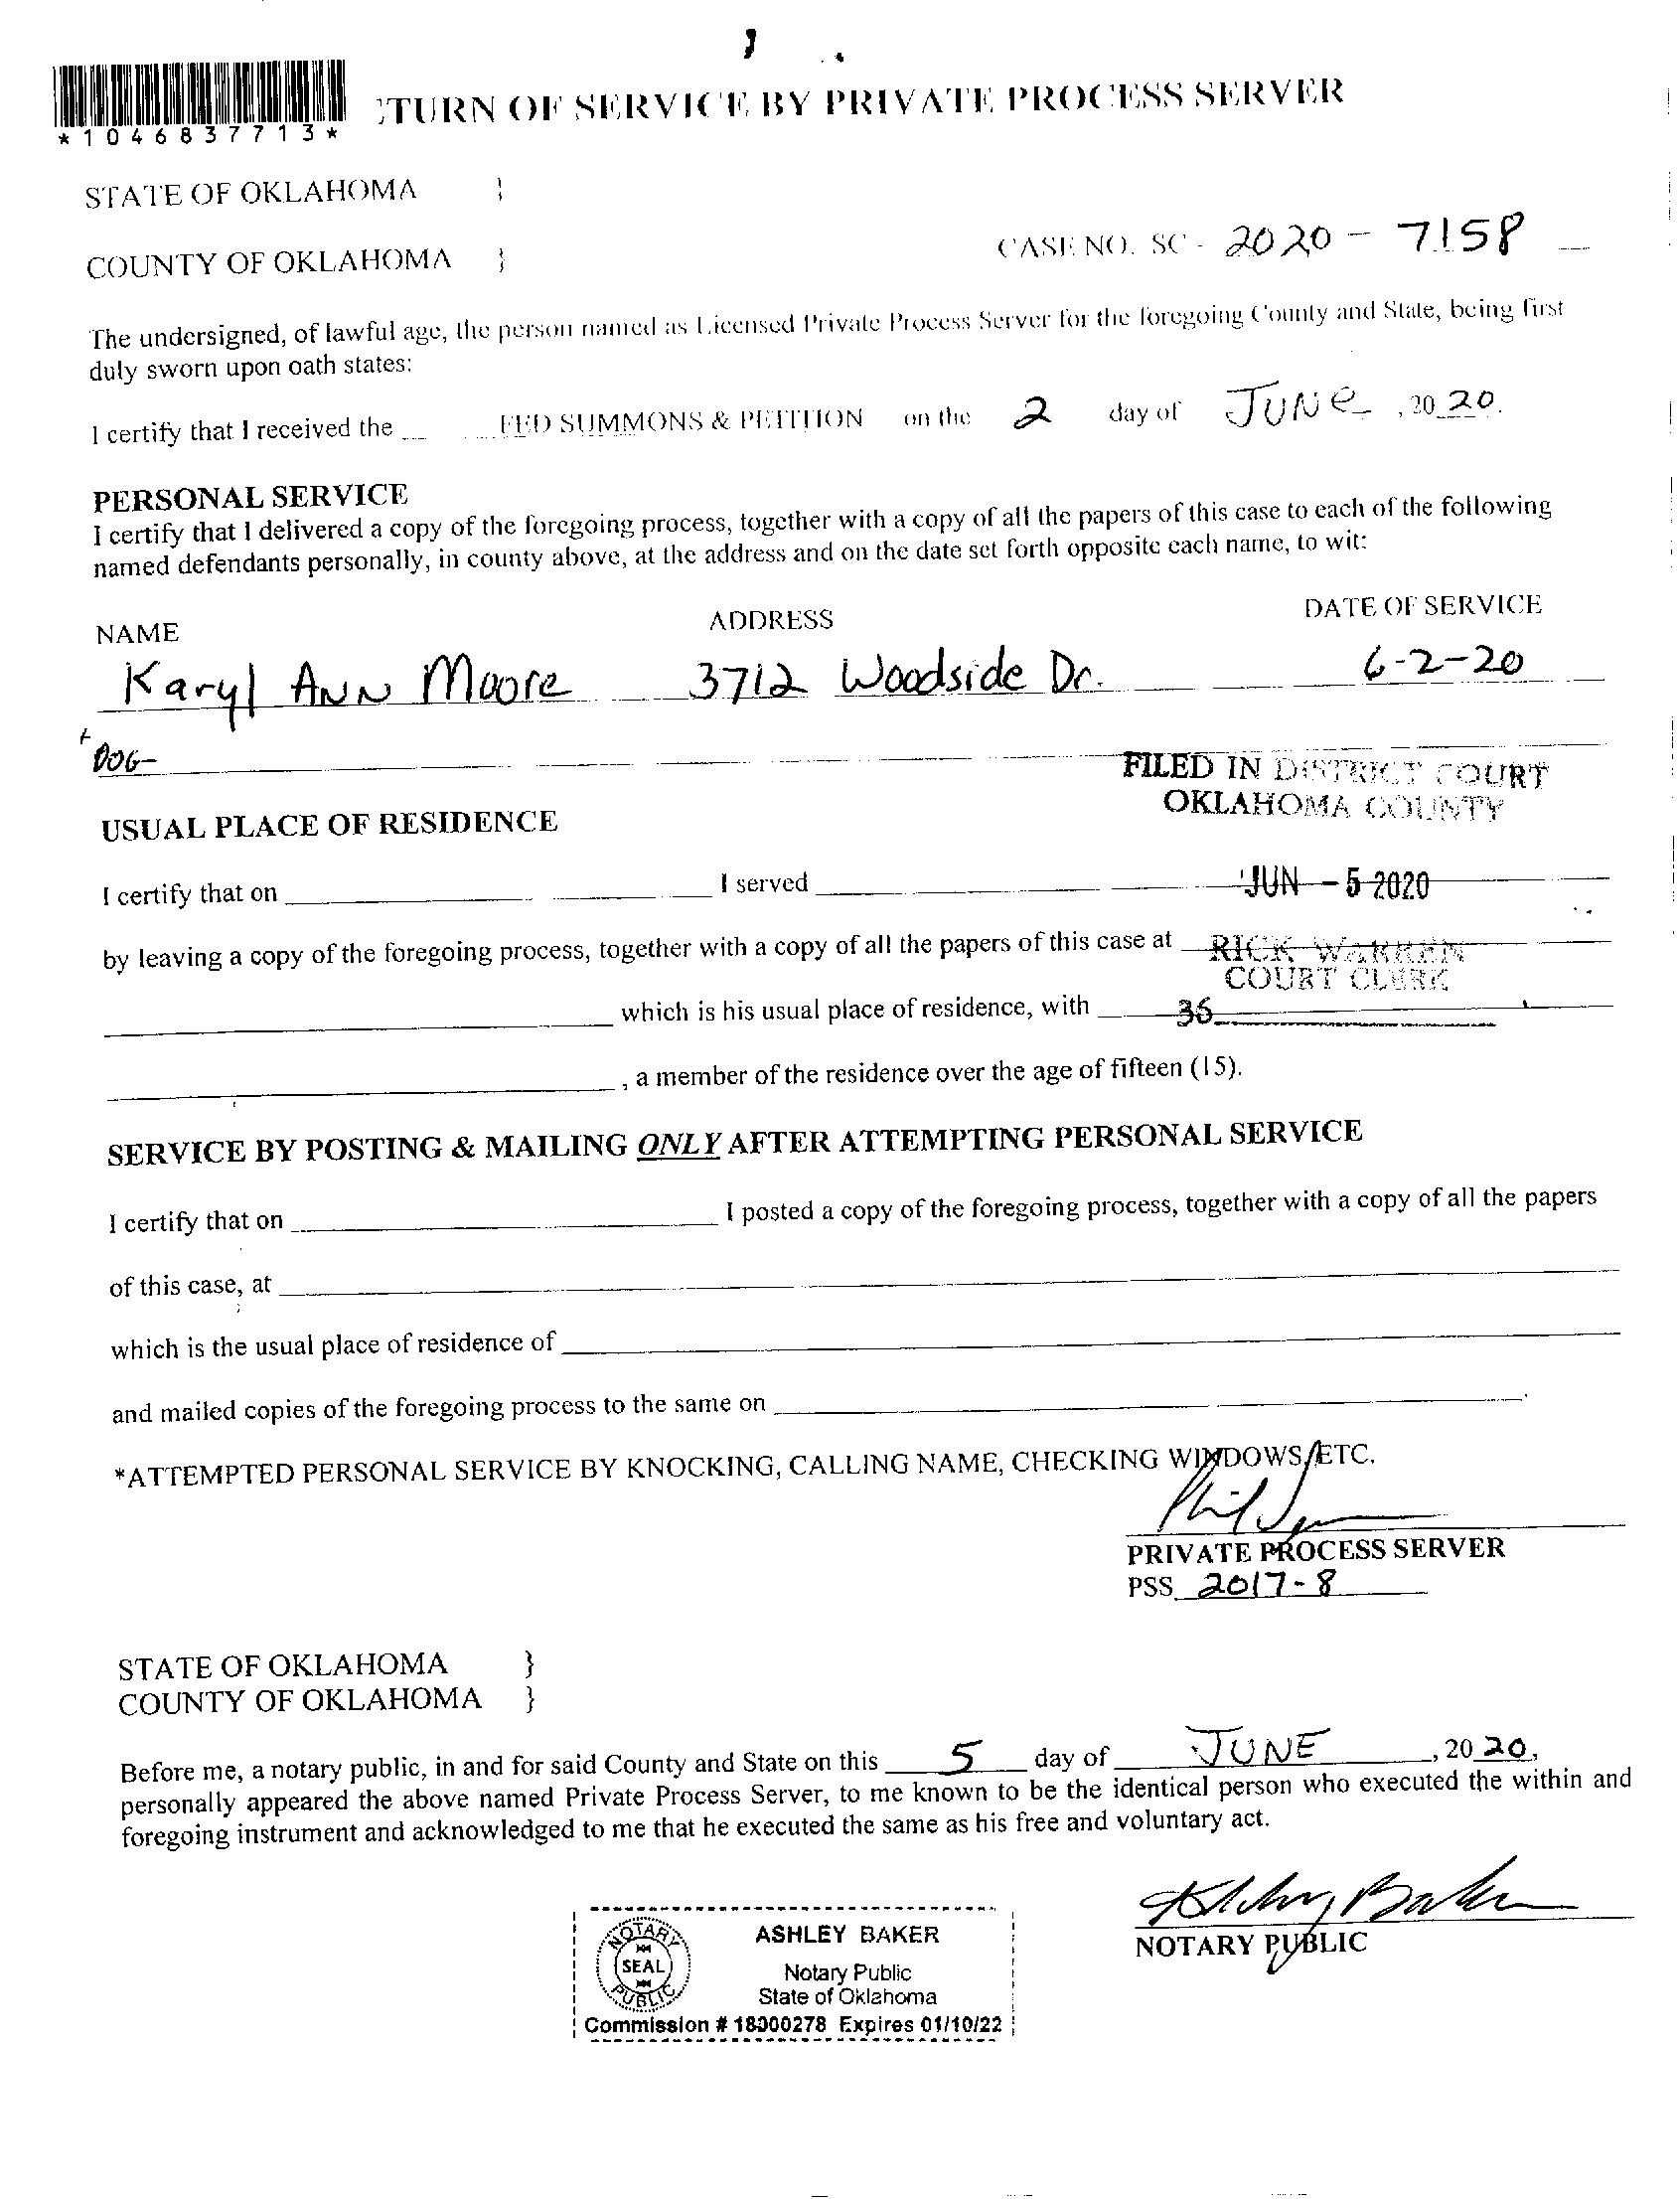 *1046837713*
TURN OF SERVICE BY PRIVATE PROCESS SERVER
STATE OF OKLAHOMA }
COUNTY OF OKLAHOMA }
CASE NO. SC - 2020 - 7158
The undersigned, of lawful age, the person named as Licensed Private Process Server for the foregoing County and State, being first
duly sworn upon oath states:
I certify that I received the FED SUMMONS & PETITION on the 2 day of JUNE, 2020.
PERSONAL SERVICE
I certify that I delivered a copy of the foregoing process, together with a copy of all the papers of this case to each of the following
named defendants personally, in county above, at the address and on the date set forth opposite each name, to wit:
NAME ADDRESS DATE OF SERVICE
Karyl ANN Moore 3712 Woodside Dr. 6-2-20
+
FILED IN DISTRICT COURT
OKLAHOMA COUNTY
USUAL PLACE OF RESIDENCE
I certify that on I served
JUN - 5 2020
by leaving a copy of the foregoing process, together with a copy of all the papers of this case at
RICK WARREN
COURT CLERK
which is his usual place of residence, with
36
, a member of the residence over the age of fifteen (15).
SERVICE BY POSTING & MAILING ONLY AFTER ATTEMPTING PERSONAL SERVICE
I certify that on I posted a copy of the foregoing process, together with a copy of all the papers
of this case, at
which is the usual place of residence of
and mailed copies of the foregoing process to the same on .
*ATTEMPTED PERSONAL SERVICE BY KNOCKING, CALLING NAME, CHECKING WINDOWS, ETC.
PRIVATE PROCESS SERVER
PSS 2017-8
STATE OF OKLAHOMA }
COUNTY OF OKLAHOMA }
Before me, a notary public, in and for said County and State on this 5 day of JUNE, 2020,
personally appeared the above named Private Process Server, to me known to be the identical person who executed the within and
foregoing instrument and acknowledged to me that he executed the same as his free and voluntary act.
Ashley Baker
NOTARY PUBLIC
NOTARY
SEAL
PUBLIC
ASHLEY BAKER
Notary Public
State of Oklahoma
Commission # 18000278 Expires 01/10/22